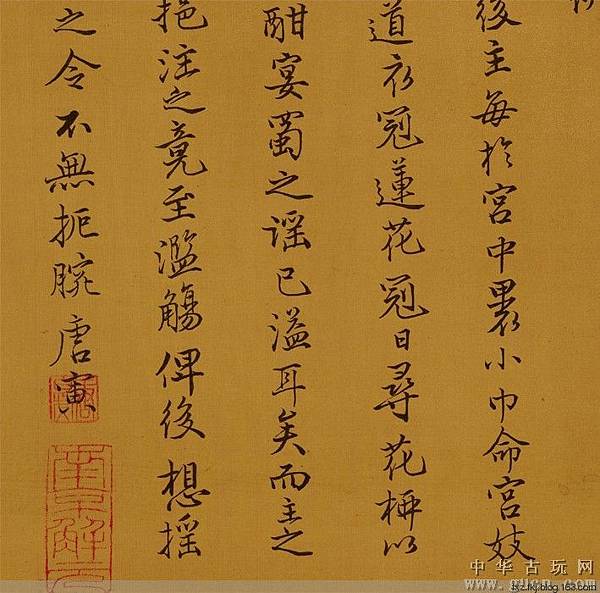 後主每於宮中裹小巾命宮妓
道衣冠蓮花冠日尋花柳以
酣宴蜀之謠已溢耳矣而主之
挹注之竟至濫觴俾後想搖
之令不無扼腕唐寅
唐寅
南京解元
中华古玩网
www.gucn.com
blog.163.com